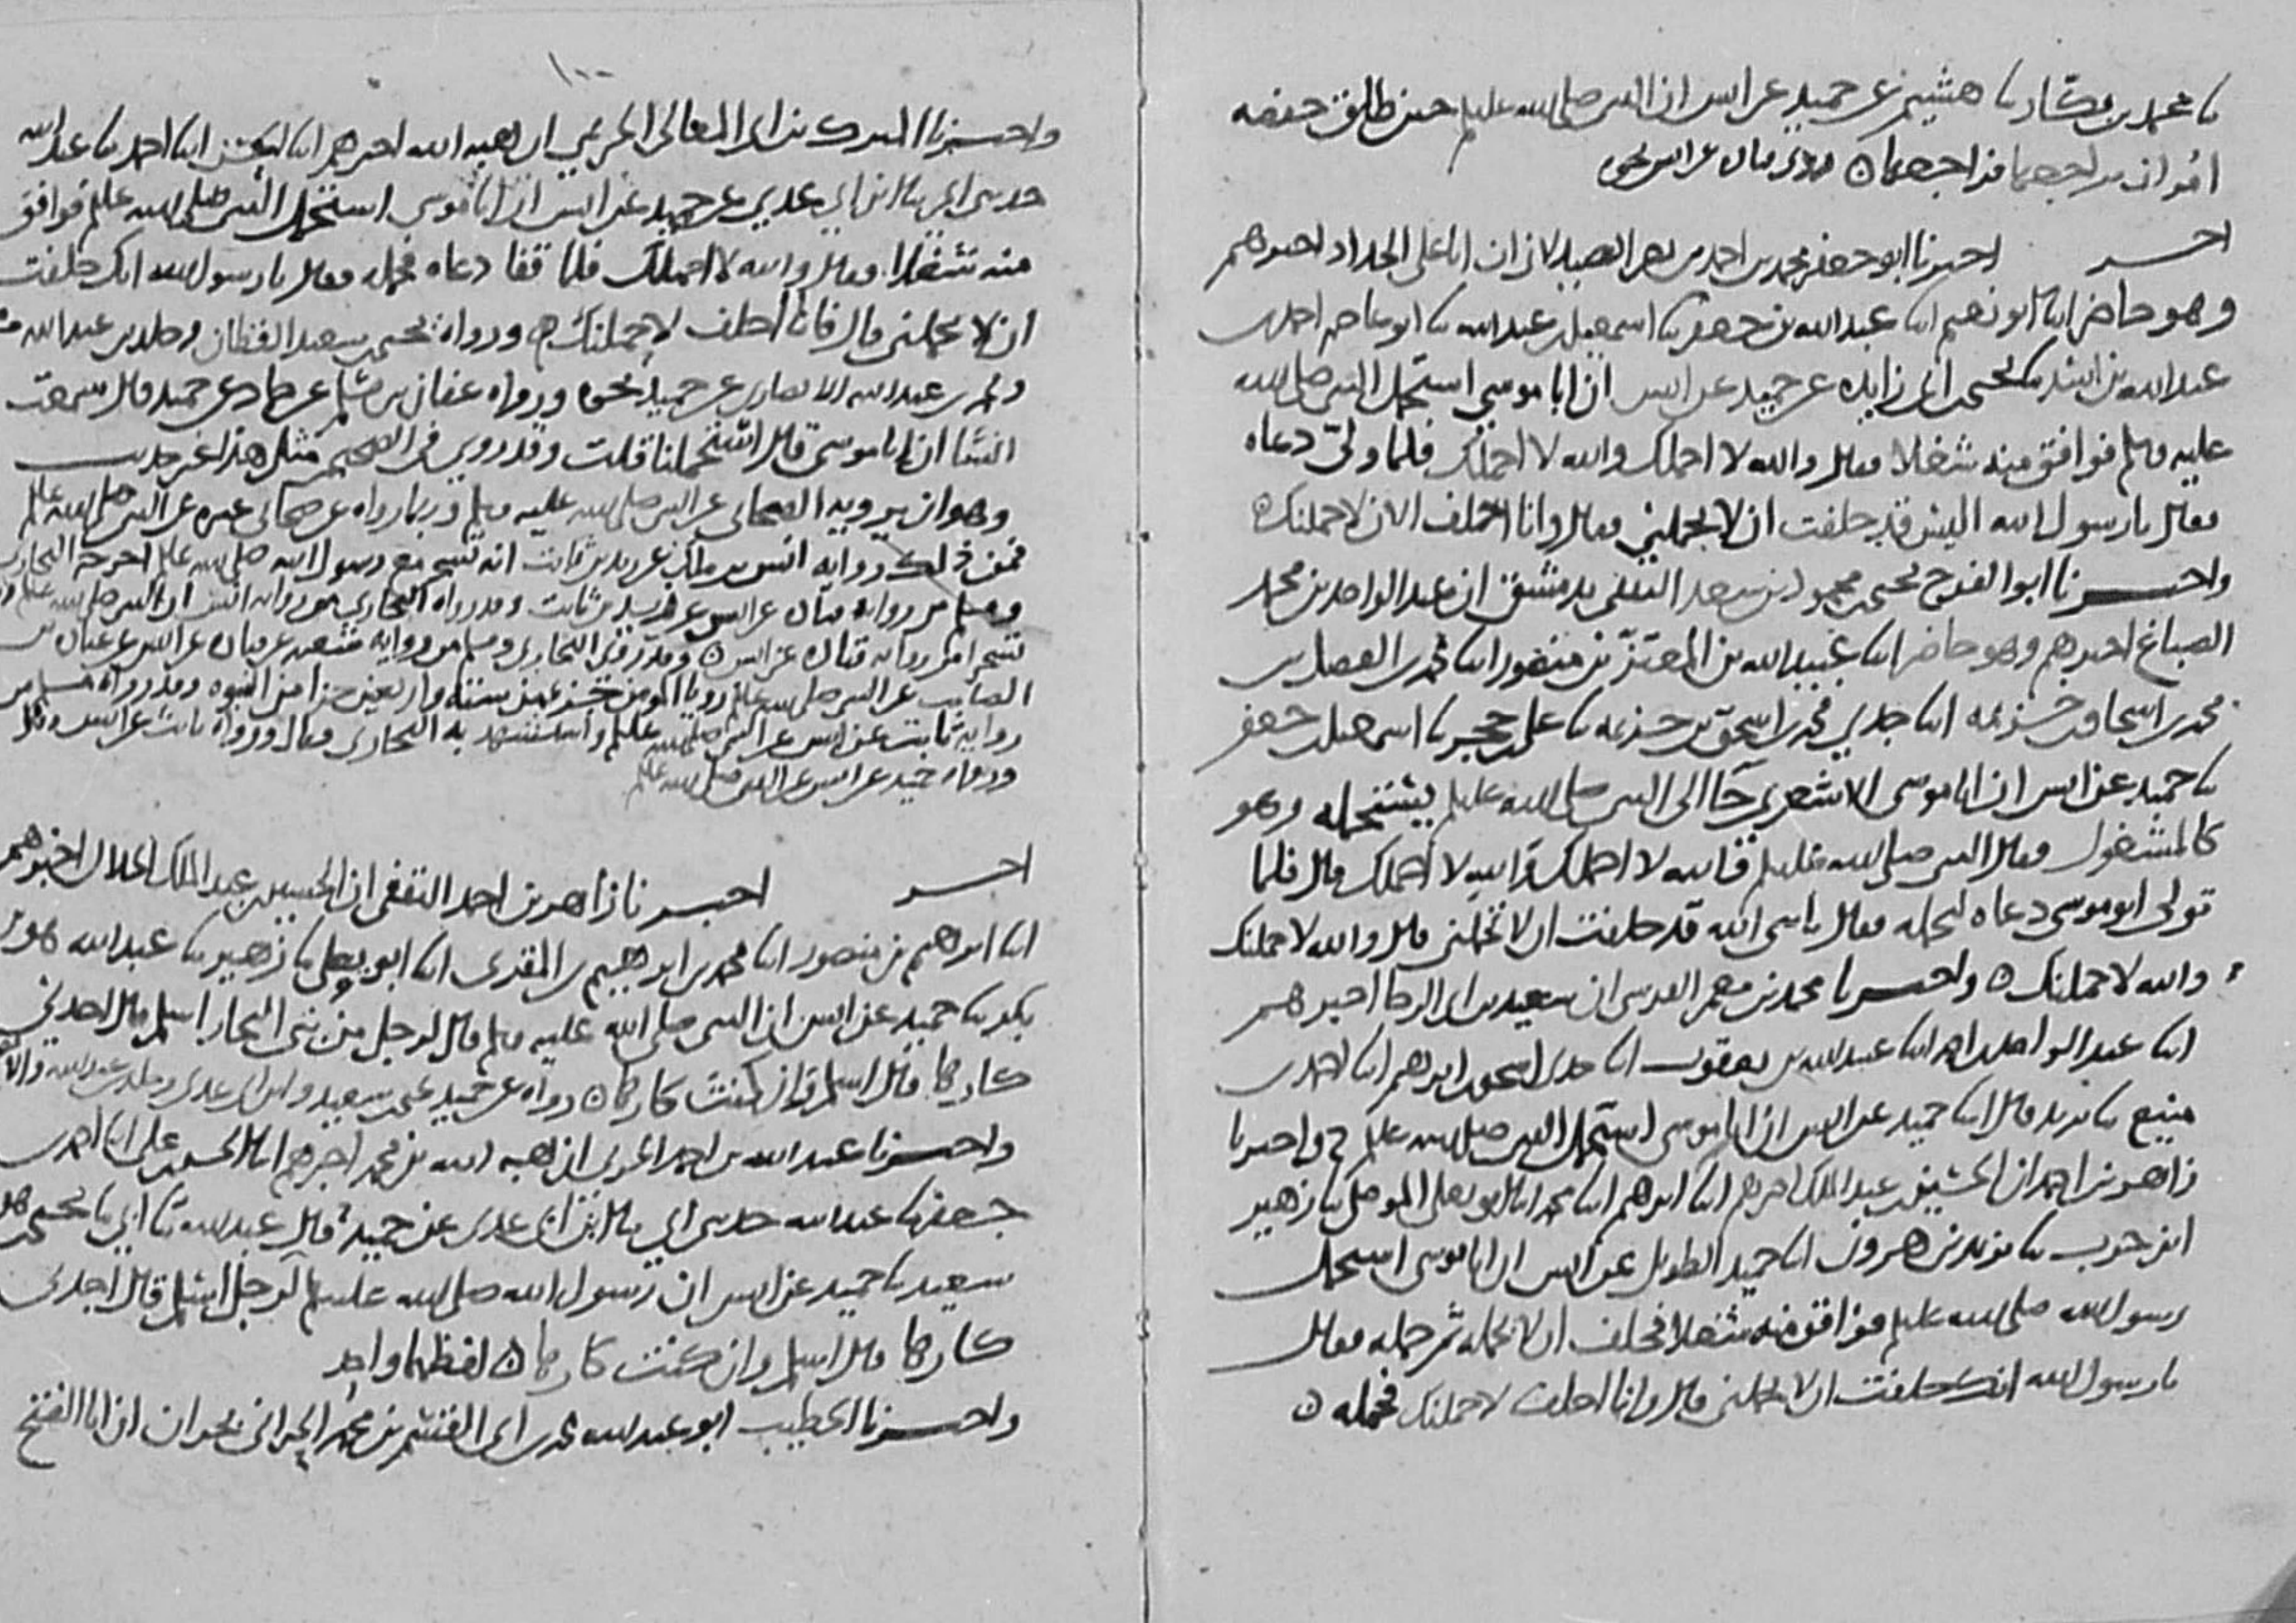 نا محمد بن بكار نا هشيم عن حميد عن انس ان النبي صلى الله عليه وسلم حين طلق حفصة
امر ان يراجعها فراجعها
اخر اخبرنا ابو جعفر محمد بن احمد بن نصر الصيدلاني ان ابا علي الحداد اخبرهم
وهو حاضر ابنا ابو نعيم ابنا عبد الله بن جعفر نا اسمعيل بن عبد الله نا
عبد الله بن نا يحيى بن ابي زايده عن حميد عن انس ان ابا موسى استحمل النبي صلى الله
عليه وسلم فوافق منه شغلا فقال والله لا احملك والله لا احملك فلما ولى دعاه
فقال يا رسول الله اليس قد حلفت ان لا تحملني فقال وانا احلف الان لاحملنك
واخبرنا ابو الفرج يحيى بن محمود بن سعد الثقفي بدمشق ان عبد الواحد بن محمد
الصباغ اخبرهم وهو حاضر ابنا عبيد الله بن المعتز بن منصور ابنا محمد بن الفضل بن
محمد بن اسحاق بن خزيمه ابنا جدي محمد بن اسحق بن خزيمه نا علي بن حجر نا اسمعيل بن جعفر
نا حميد عن انس ان ابا موسى الاشعري جا الى النبي صلى الله عليه وسلم يستحمله وهو
كالمشغول فقال النبي صلى الله عليه وسلم والله لا احملك والله لا احملك قال فلما
تولى ابو موسى دعاه ليحمله فقال يا نبي الله قد حلفت ان لا تحملني قال والله لاحملنك
والله لاحملنك واخبرنا محمد بن معمر القرشي ان سعيد بن ابي الرجا اخبرهم
ابنا عبد الواحد بن احمد ابنا عبيد الله بن يعقوب ابنا جدي اسحق بن ابرهيم ابنا احمد بن
منيع نا يزيد قال ابنا حميد عن انس ان ابا موسى استحمل النبي صلى الله عليه وسلم ح واخبرنا
زاهر بن احمد ان الحسين بن عبد الملك اخبرهم ابنا ابرهيم ابنا محمد ابنا ابو يعلى الموصلي نا زهير
ابن حرب نا يزيد بن هرون ابنا حميد الطويل عن انس ان ابا موسى استحمل
رسول الله صلى الله عليه وسلم فوافق منه شغلا فحلف ان لا يحمله ثم حمله فقال
يا رسول الله انك حلفت ان لا تحملني قال وانا احلف لاحملنك فحمله
١٠٠
واخبرنا المبارك بن ابي المعالي الحريمي ان هبة الله اخبرهم ابنا الحسن ابنا احمد نا عبد الله
حدثني ابي نا ابن ابي عدي عن حميد عن انس ان ابا موسى استحمل النبي صلى الله عليه وسلم فوافق
منه شغلا فقال والله لا احملك فلما قفا دعاه فحمله فقال يا رسول الله انك حلفت
ان لا تحملني قال فانا احلف لاحملنك ورواه يحيى بن سعيد القطان وخالد بن عبد الله
ومحمد بن عبد الله الانصاري عن حميد بنحوه ورواه عفان بن مسلم عن حماد عن حميد قال سمعت
انسا ان ابا موسى قال استحملنا قلت وقد روي في الصحيح مثل هذا غير حديث
وهو ان يرويه الصحابي عن النبي صلى الله عليه وسلم وربما رواه عن صحابي غيره عن النبي صلى الله عليه وسلم
فمن ذلك رواية انس بن مالك عن زيد بن ثابت انه تسحر مع رسول الله صلى الله عليه وسلم اخرجه البخاري
ومسلم من رواية قتادة عن انس عن زيد بن ثابت وقد رواه البخاري من رواية انس ان النبي صلى الله عليه وسلم
تسحر من رواية قتادة عن انس وقد روى البخاري ومسلم من رواية شعبه عن قتادة عن انس عن عبادة بن
الصامت عن النبي صلى الله عليه وسلم رويا المومن جزء من ستة واربعين جزا من النبوه وقد رواه مسلم من
رواية ثابت عن انس عن النبي صلى الله عليه وسلم واستشهد به البخاري وقال ورواه ثابت عن انس
ورواه حميد عن انس عن النبي صلى الله عليه وسلم
اخر اخبرنا زاهر بن احمد الثقفي ان الحسين بن عبد الملك الخلال اخبرهم
ابنا ابرهيم بن منصور ابنا محمد بن ابرهيم بن المقرئ ابنا ابو يعلى نا زهير نا عبد الله هو بن
بكر نا حميد عن انس ان النبي صلى الله عليه وسلم قال لرجل من بني النجار اسلم قال اجدني
كارها قال اسلم وان كنت كارها رواه عن حميد يحيى بن سعيد وابن ابي عدي وخالد بن عبد الله
واخبرنا عبد الله بن احمد الحربي ان هبة الله بن محمد اخبرهم ابنا الحسن بن علي ابنا احمد بن
جعفر نا عبد الله حدثني ابي نا ابن ابي عدي عن حميد قال عبد الله نا ابي نا يحيى بن
سعيد نا حميد عن انس ان رسول الله صلى الله عليه وسلم قال لرجل اسلم قال اجدني
كارها قال اسلم وان كنت كارها لفظهما واحد
واخبرنا الخطيب ابو عبد الله محمد بن ابي القسم بن محمد الحراني بحران ان ابا الفتح